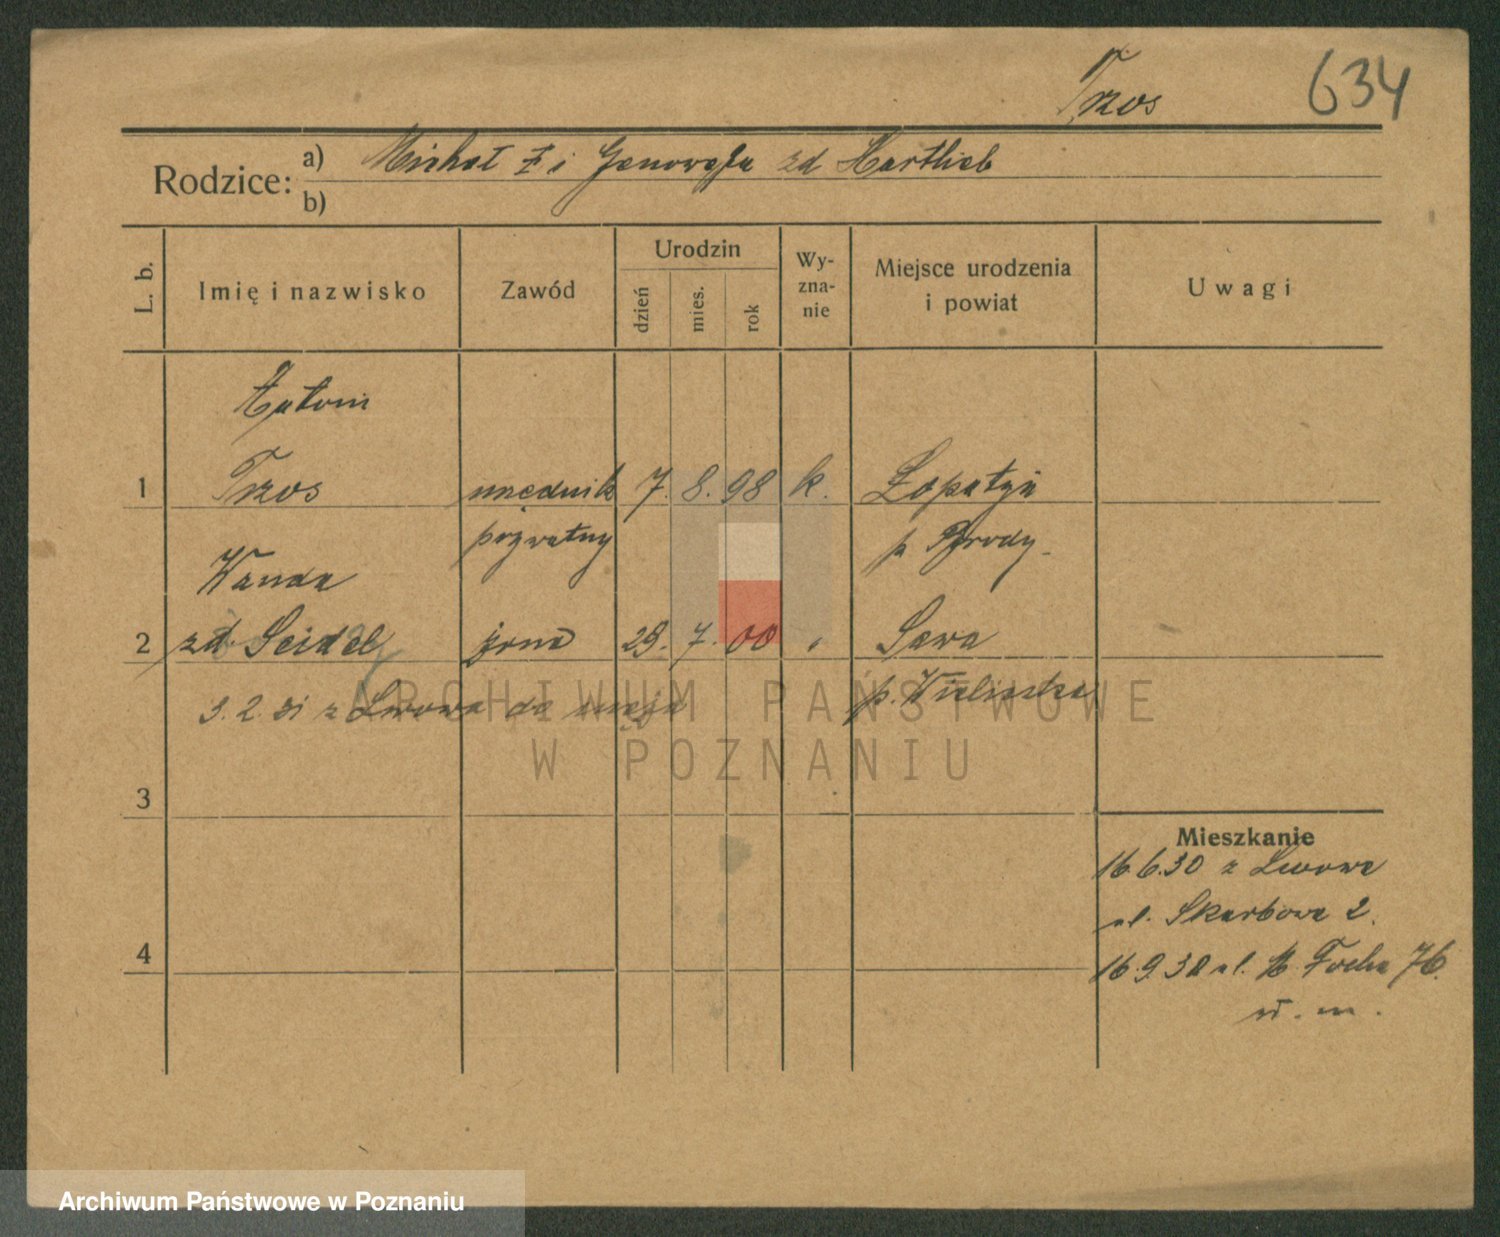 Trzos
634
Rodzice:
a) Michał i Genowefa zd Hartlieb
b)
L. b.
Imię i nazwisko
Zawód
Urodzin
dzień
mies.
rok
Wy-
zna-
nie
Miejsce urodzenia
i powiat
Uwagi
Antoni
1 Trzos urzędnik 7. 8. 98 k. Łopatyń
prywatny p Brody
Wanda
2 zd Seidel żona 29. 7. 00 Sawa
p. Wieliczka
3.2.31 z Lwowa do męża
3
4
Mieszkanie
16.6.30 z Lwowa
ul. Skarbowa 2.
16.9.30 ul. M. Focha 76.
wł. m.
ARCHIWUM PAŃSTWOWE
W POZNANIU
Archiwum Państwowe w Poznaniu